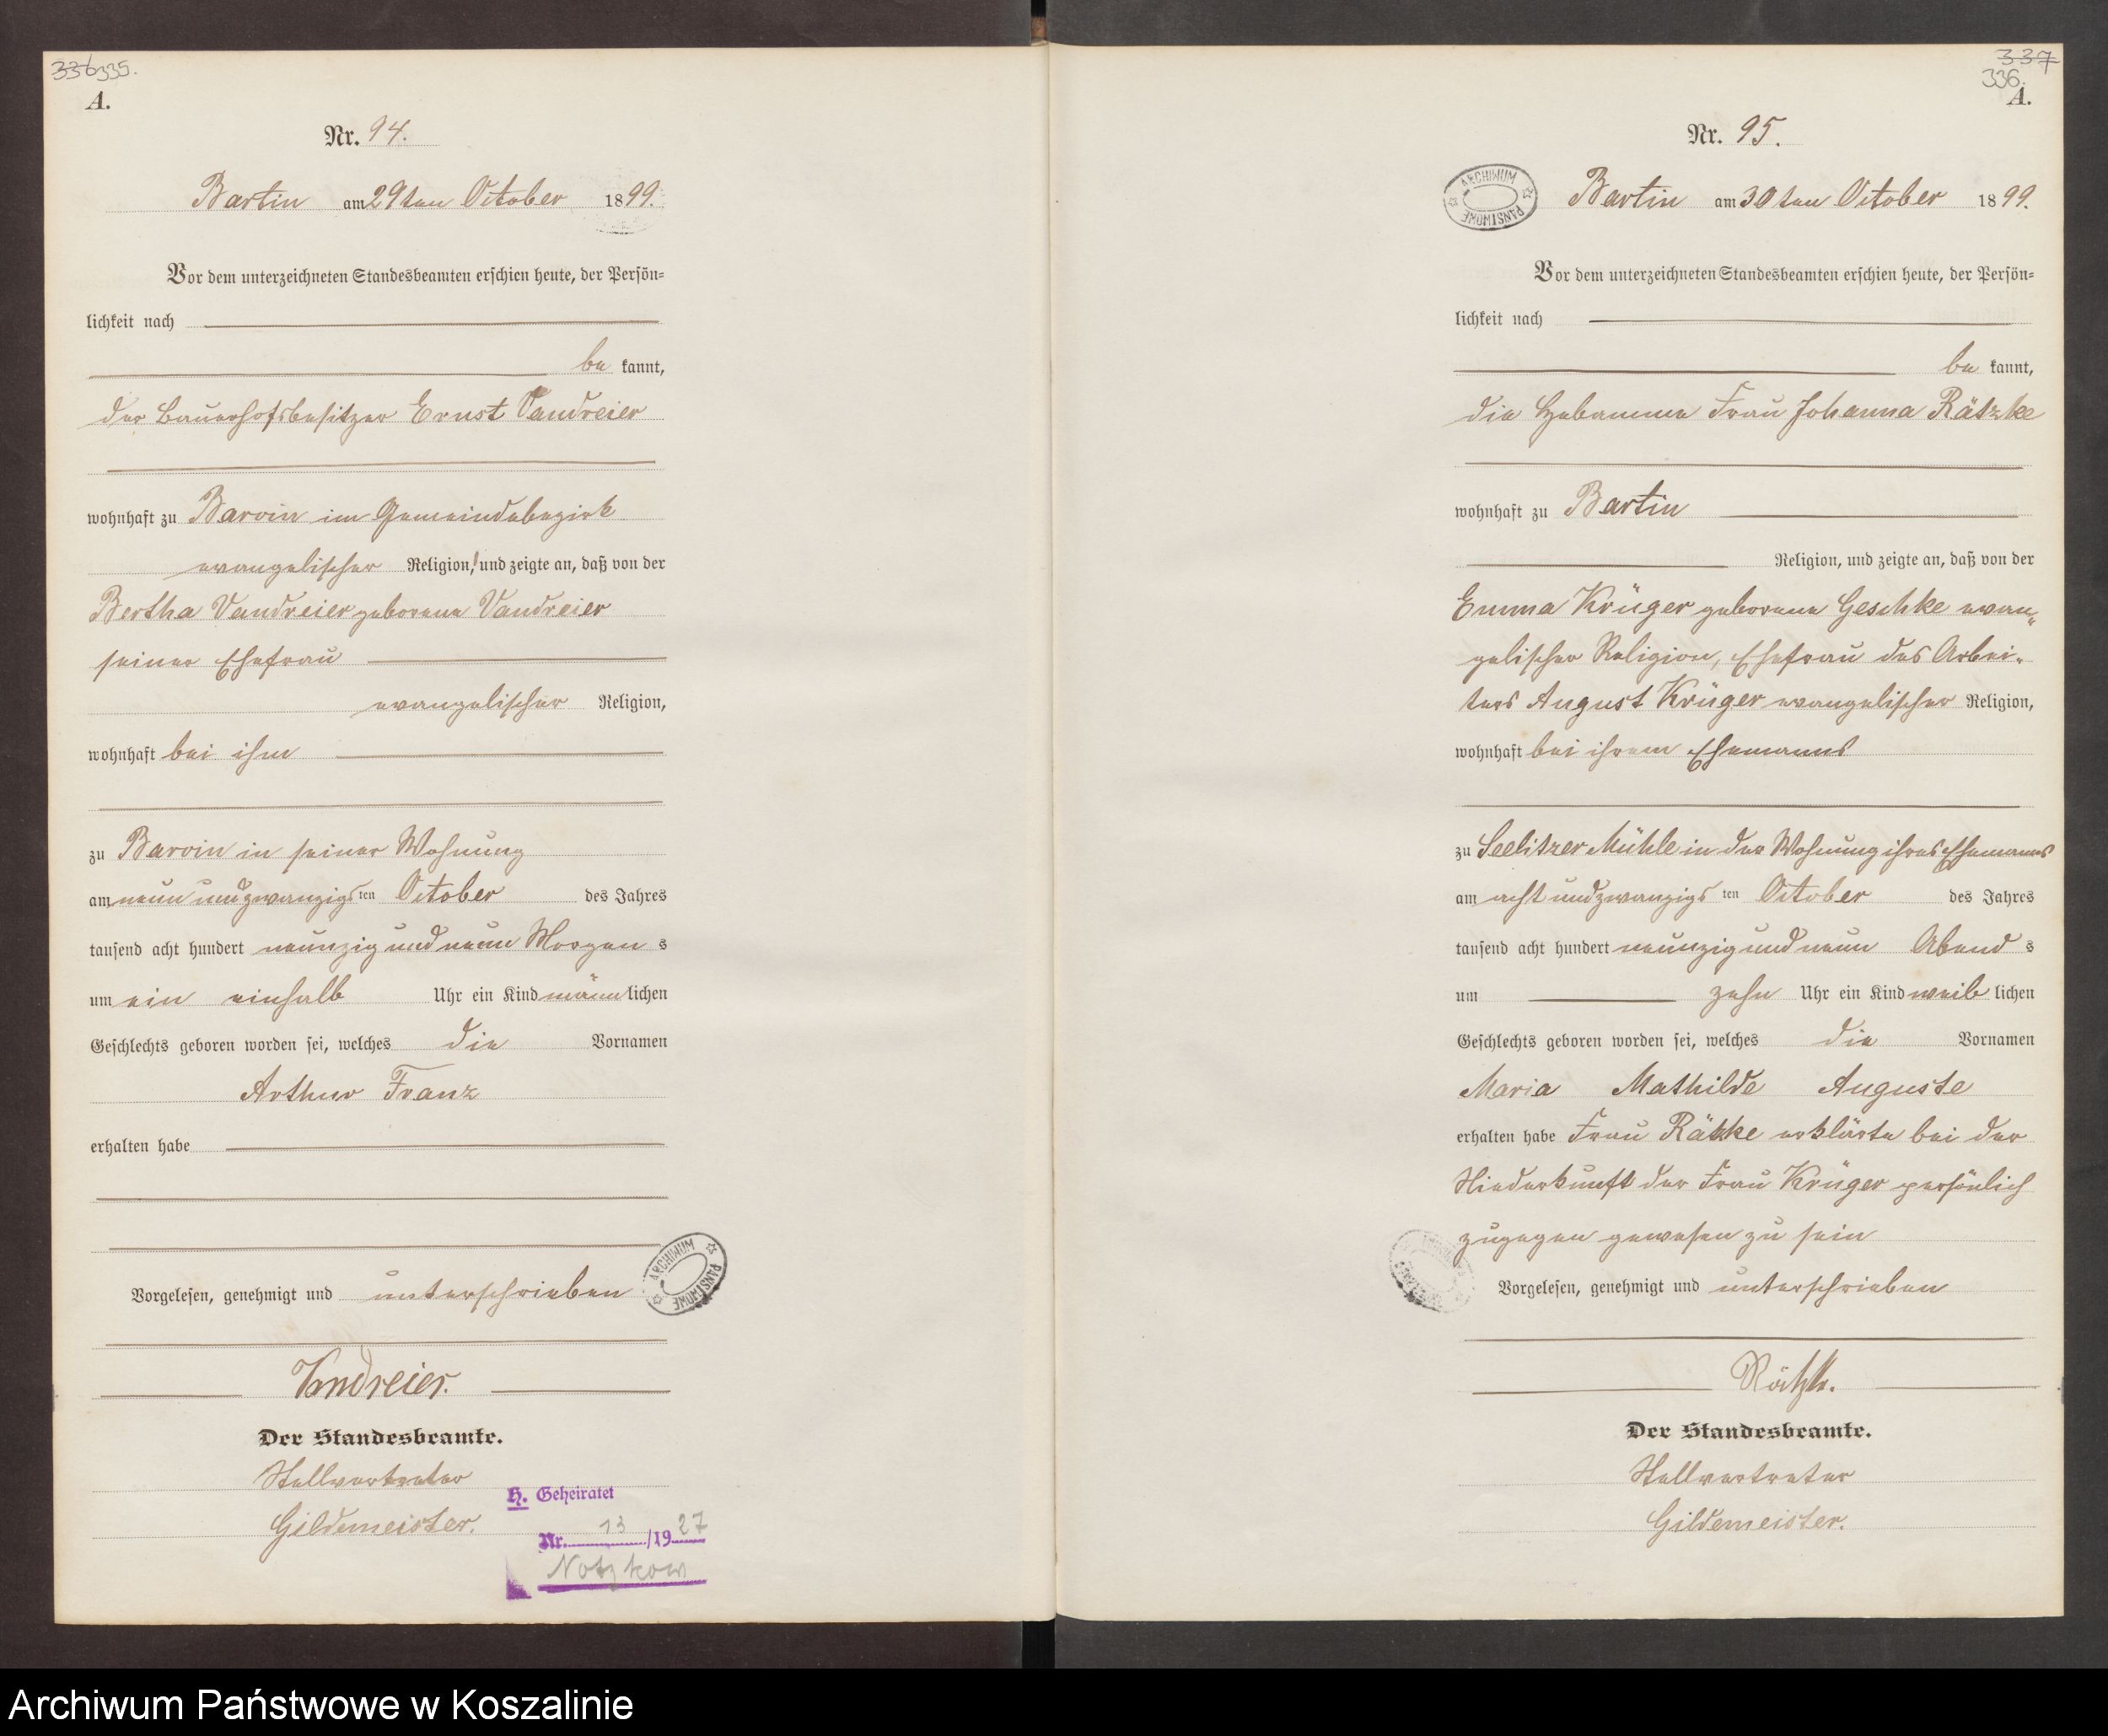 336 335.
A.
Nr. 94.
Bartin am 29ten October 1899.
Vor dem unterzeichneten Standesbeamten erschien heute, der Persön=
lichkeit nach
be kannt,
der Bauerhofsbesitzer Ernst Vandreier
wohnhaft zu Barvin im Gemeindebezirk
evangelischer Religion, und zeigte an, daß von der
Bertha Vandreier geborene Vandreier
seiner Ehefrau
evangelischer Religion,
wohnhaft bei ihm
zu Barvin in seiner Wohnung
am neun und zwanzigsten October des Jahres
tausend acht hundert neunzig und neun Morgens
um ein einhalb Uhr ein Kind männlichen
Geschlechts geboren worden sei, welches die Vornamen
Arthur Franz
erhalten habe
ARCHIWUM PAŃSTWOWE
Vorgelesen, genehmigt und unterschrieben
Vandreier.
Der Standesbeamte.
Stellvertreter
Gildemeister.
H. Geheiratet
Nr. 13/1927
Notzkow
337
336.
A.
Nr. 95.
ARCHIWUM PAŃSTWOWE
Bartin am 30ten October 1899.
Vor dem unterzeichneten Standesbeamten erschien heute, der Persön=
lichkeit nach
be kannt,
die Hebamme Frau Johanna Rätzke
wohnhaft zu Bartin
Religion, und zeigte an, daß von der
Emma Krüger geborene Geschke evan„
gelischer Religion, Ehefrau des Arbei„
ters August Krüger evangelischer Religion,
wohnhaft bei ihrem Ehemanns
zu Seelitzer Mühle in der Wohnung ihres Ehemanns
am acht und zwanzigsten October des Jahres
tausend acht hundert neunzig und neun Abends
um zehn Uhr ein Kind weiblichen
Geschlechts geboren worden sei, welches die Vornamen
Maria Mathilde Auguste
erhalten habe Frau Rätzke erklärte bei der
Niederkunft der Frau Krüger persönlich
zugegen gewesen zu sein
Vorgelesen, genehmigt und unterschrieben
Rätzke.
Der Standesbeamte.
Stellvertreter
Gildemeister.
Archiwum Państwowe w Koszalinie